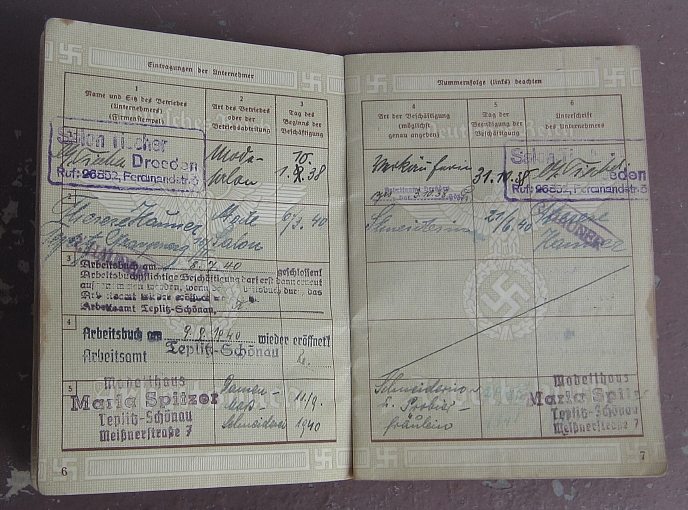 Eintragungen der Unternehmer
1
Name und Sitz des Betriebes
(Unternehmers)
(Firmenstempel)
2
Art des Betriebes
oder der
Betriebsabteilung
3
Tag des
Beginns der
Beschäftigung
Salon Tischer
Dresden
Ruf: 26852, Ferdinandstr. 5
Mode-
salon
10.
1.
38
2
Hammer
Mode
salon
6/3. 40
3
Arbeitsbuch am 8.7.40 geschlossen!
Arbeitsbuchpflichtige Beschäftigung darf erst dann erneut
aufgenommen werden, wenn das Arbeitsbuch durch das
Arbeitsamt wieder eröffnet ist.
Arbeitsamt Teplitz-Schönau.
4
Arbeitsbuch am 9.9.1940 wieder eröffnet!
Arbeitsamt Teplitz-Schönau
5
Modellhaus
Maria Spitzer
Teplitz-Schönau
Meißnerstraße 7
Damen-
Schneiderei
11/9.
1940
6
Nummernfolge (links) beachten
4
Art der Beschäftigung
(möglichst
genau angeben)
5
Tag der
Beendigung der
Beschäftigung
6
Unterschrift
des Unternehmers
Verkäuferin
31.10.38
Salon Tischer
Dresden
Ruf: 26852, Ferdinandstr. 5
Schneiderin
21/6.40
Hammer
Schneiderin
u. Probier-
fräulein
Modellhaus
Maria Spitzer
Teplitz-Schönau
Meißnerstraße 7
7